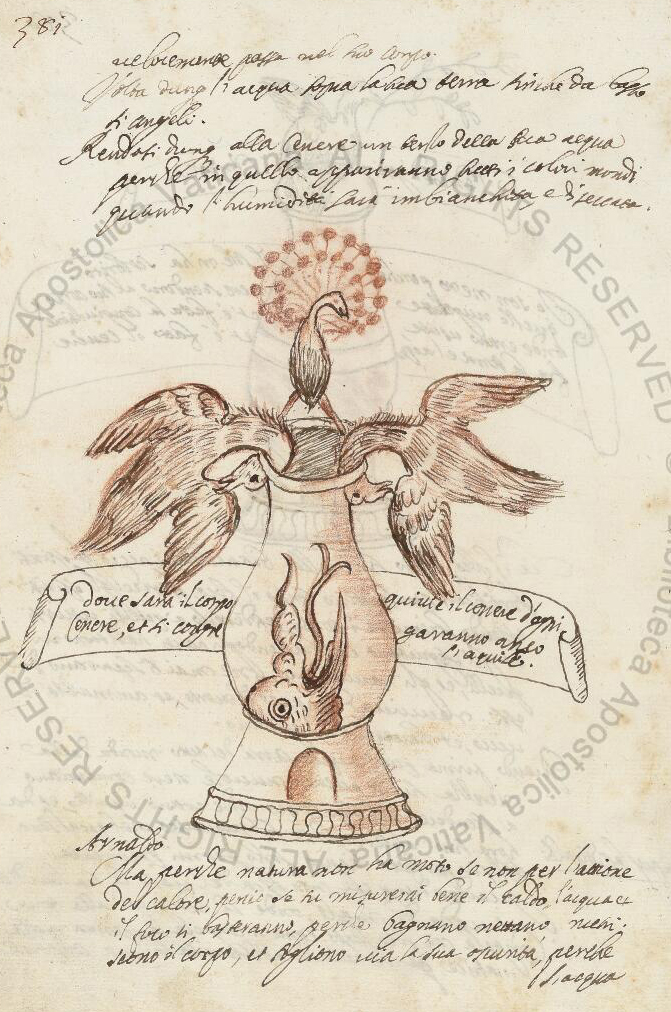 381
velocemente passa nel suo corpo.
l'acqua sopra la sua terra sinche da
gl'angeli.
Rendati dunq alla Cenere un della sua acqua
perche in quello appariranno tutti i colori mondi
quando l'humidità sarà imbianchita e diseccata.
doue sarà il corpo
Cenere, et si congre
quiui il cenere d'ogni
garanno anco
l'aquile.
Arnaldo
Ma perche natura non ha moto se non per l'azione
del calore, perciò se tu misurerai bene il caldo, l'acqua et
il foco ti basteranno, perche bagnano nettano
scono il corpo, et togliono uia la sua opurità, perche
l'acqua
Biblioteca Apostolica Vaticana ALL RIGHTS RESERVED © Biblioteca Apostolica Vaticana ALL RIGHTS RESERVED